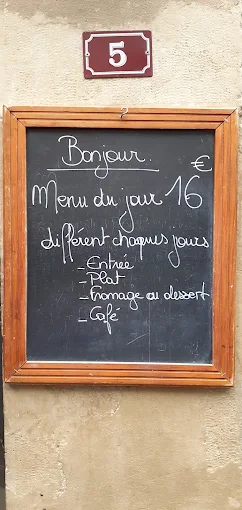 5
Bonjour
Menu du jour 16 €
différent chaques jours
- Entrée
- Plat
- Fromage ou dessert
- Café